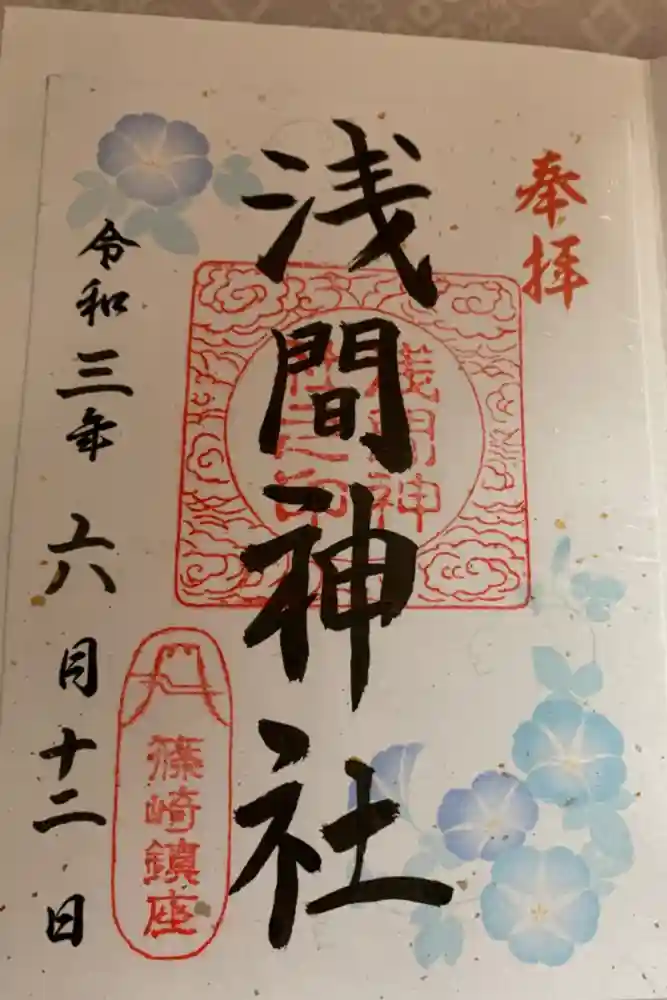 奉拝
浅間神社
浅間神
社之印
令和三年六月十二日
篠崎鎮座